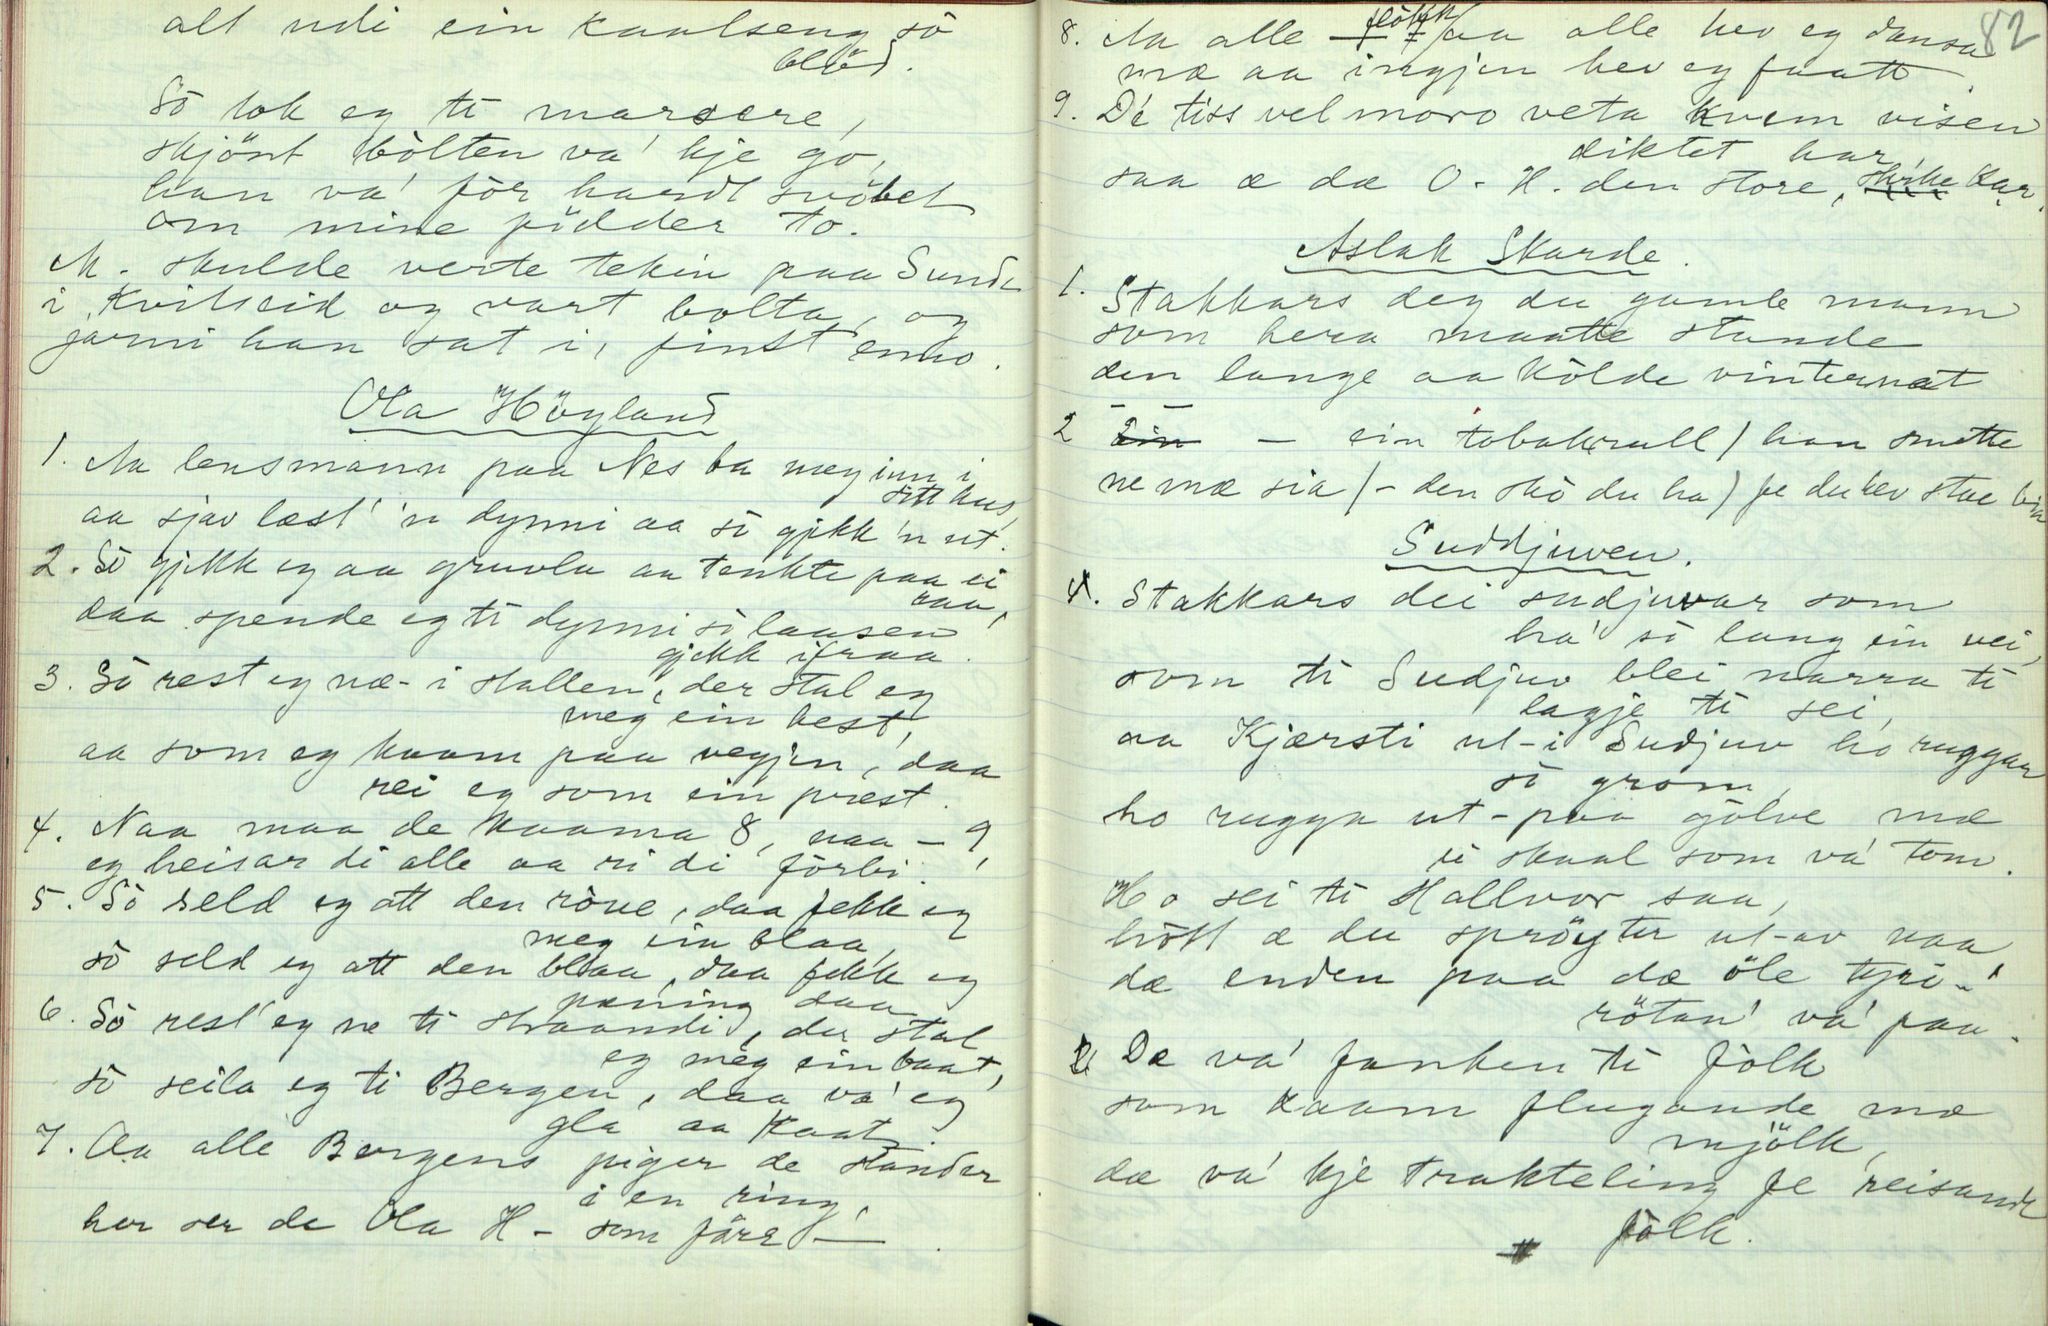 alt udi ein kaalseng sò
blöd.
Sò tok eg ti marsere,
skjönt bòlten va' kje go,
han va' fòr hardt svöbet
om mine födder to.
M. skulde verte tekin paa Sunde
i Kviteseid og vart bolta, og
jarni han sat i, finst enno.
Ola Höyland
1. Aa lensmann paa Nes ba meg inn i
sitt hus,
aa sjav læst' 'n dynni aa sò gjekk 'n ut.
2. Sò gjekk eg aa gruvla aa tenkte paa ei
raa,
daa spende eg ti dynni sò laasen
gjekk ifraa.
3. Sò rest eg næ- i stallen, der stal eg
meg ein hest,
aa som eg kaam paa vegjen, daa
rei eg som ein prest.
4. Naa maa de kaama 8, naa - 9,
eg heisar di alle aa ri di fòrbi.
5. Sò seld eg att den röue, daa fekk eg
meg ein blaa,
sò seld eg att den blaa, daa fekk eg
pæning daa
6. Sò rest' eg ne ti straandi, der stal
eg meg ein baat,
sò seila eg ti Bergen, daa va' eg
gla aa kaat.
7. Aa alle Bergens piger de stander
i en ring,
her ser de Ola H - som före -
82
8. Aa alle flökk aa alle hev eg dansa
mæ aa ingjen hev eg faatt.
9. De' tiss vel moro veta kvem visen
diktet har,
saa æ dæ O - H. den store, stirke kar.
Aslak Skarde.
1. Stakkars deg du gamle mann
som hera maatte stande
den lange aa kòlde vinternat
2 ein - ein tobakrull / han smette
ne mæ sia / - den skò du ha / fe du hev stae her
Suddjuven.
1. Stakkars dei sudjuvar som
ha' sò lang ein vei,
som ti Sudjuv blei narra ti
lagje ti sei,
aa Kjærsti ut-i Sudjuv ho ruggar
sò grom,
ho rugga ut-paa gölve mæ
ei skaal som va' tom.
Ho sei ti Hallvor saa,
hòtt æ du spröyter ut-av naa,
dæ enden paa dæ öle tyri-
rötan' va' paa.
2. Dæ va' fanken ti fòlk
som kaam flugande mæ
mjölk,
dæ va' kje trakteling fe reisande
fòlk.